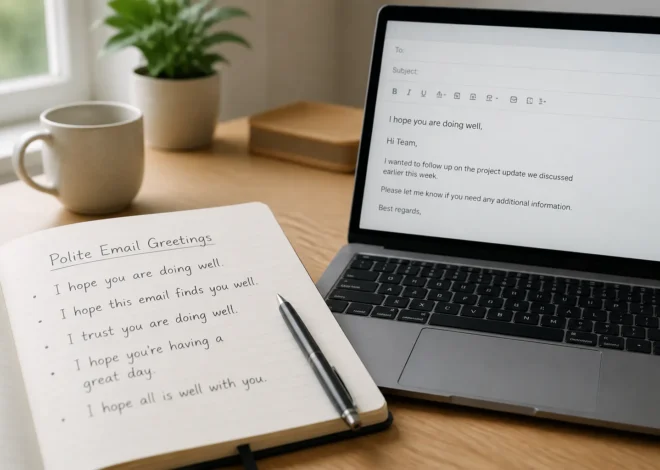 Polite Email Greetings
I hope you are doing well.
I hope this email finds you well.
I trust you are doing well.
I hope you're having a
great day.
I hope all is well with you.
To:
Subject:
B I U
I hope you are doing well,
Hi Team,
I wanted to follow up on the project update we discussed
earlier this week.
Please let me know if you need any additional information.
Best regards,